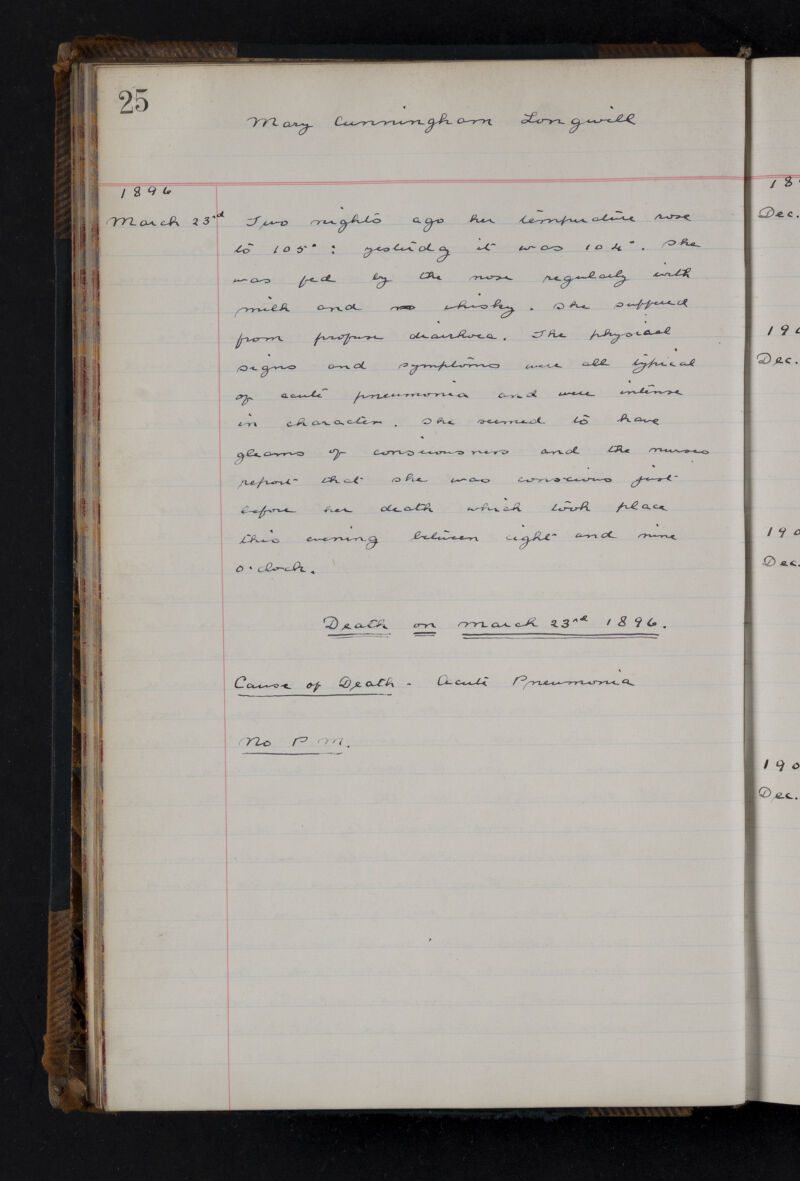 25
Mary Cunningham Longwill
1896
March 23rd Two nights ago her temperature rose
to 105° : yesterday it was 104°. She
was fed by the nose regularly with
milk and whisky. She suffered
from profuse diarrhoea. The physical
signs and symptoms were all typical
of acute pneumonia and were intense
in character. She seemed to have
gleams of consciousness and the nurses
report that she was conscious just
before her death which took place
this evening between eight and nine
o'clock.
Death on March 23rd 1896.
Cause of Death - Acute Pneumonia
No P.M.
18
Dec.
190
Dec.
190
Dec.
190
Dec.